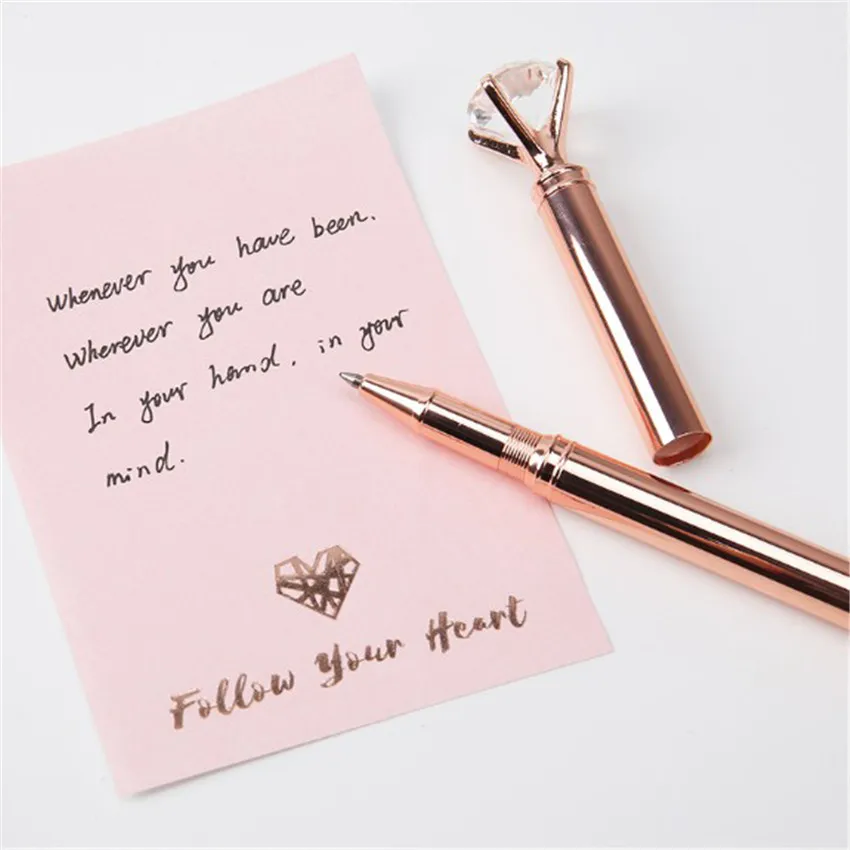 Whenever you have been.
Wherever you are
In your hand. in your
mind.
Follow Your Heart